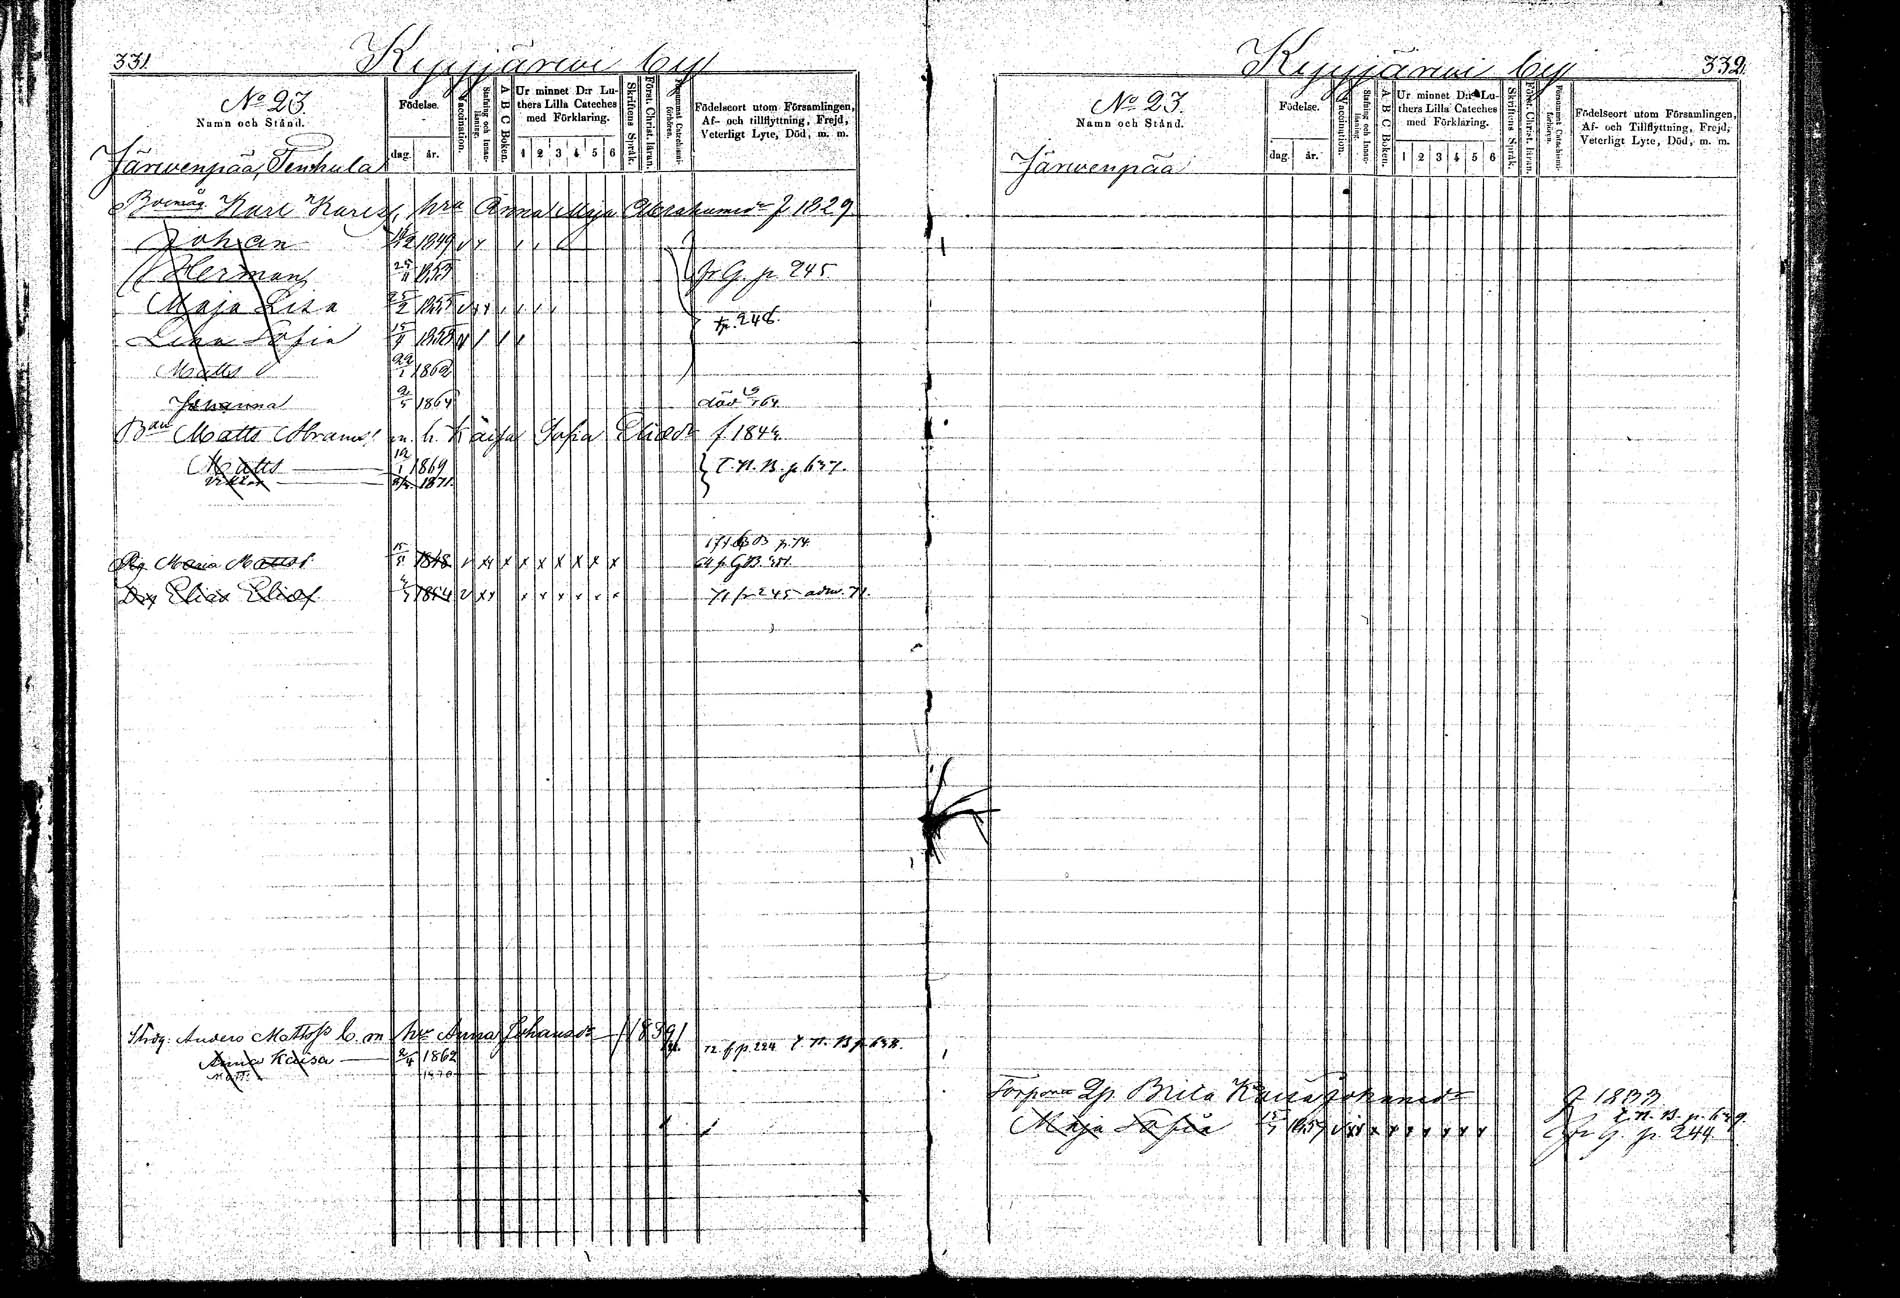 331.
Kyyjärwi by
No 23.
Namn och Stånd.
Födelse.
dag. år.
Vaccination.
Stafning och Innanläsning.
A B C Boken.
Ur minnet D:r Luthers Lilla Cateches med Förklaring.
1 2 3 4 5 6
Skriftens Språk.
Först. Christ. läran.
Försummat Catechismiförhören.
Födelseort utom Församlingen,
Af- och tillflyttning, Frejd,
Veterligt Lyte, Död, m. m.
Järwenpää, Tenhula
Karl Karlss. hra Anna Maja Abrahamsdr f 1829
Johan 1849
Herman 1853 fr G. p. 245.
Maja Lisa 25/2 1855
Lena Sofia 15/4 1858 p. 246.
Matts 22/1 1862
Johanna 2/5 1864 död /64.
Matts Abrams. m. h. Kaisa Sofia Eliædr f 1844.
Matts 12/1 1869 T. N. B. p 637.
Viktor 1871.
Pig Maria Mattsd. 1848 p. 74
Drg Elias Eliæs. 1854 71 p 245 adm. 71.
Anders Mattsss b. m hr Anna Johansdr f 1839
Anna Kaisa 2/4 1862 72 f p. 224 T. N. B p 638.
Matt. 1870
332.
Kyyjärwi by
No 23.
Namn och Stånd.
Födelse.
dag. år.
Vaccination.
Stafning och Innanläsning.
A B C Boken.
Ur minnet D:r Luthers Lilla Cateches med Förklaring.
1 2 3 4 5 6
Skriftens Språk.
Först. Christ. läran.
Försummat Catechismiförhören.
Födelseort utom Församlingen,
Af- och Tillflyttning, Frejd,
Veterligt Lyte, Död, m. m.
Järwenpää
Brita Kaisa Johansdr f 1833
T. N. B. p. 639.
Maja Sofia 15/7 1857 fr G. p. 244.